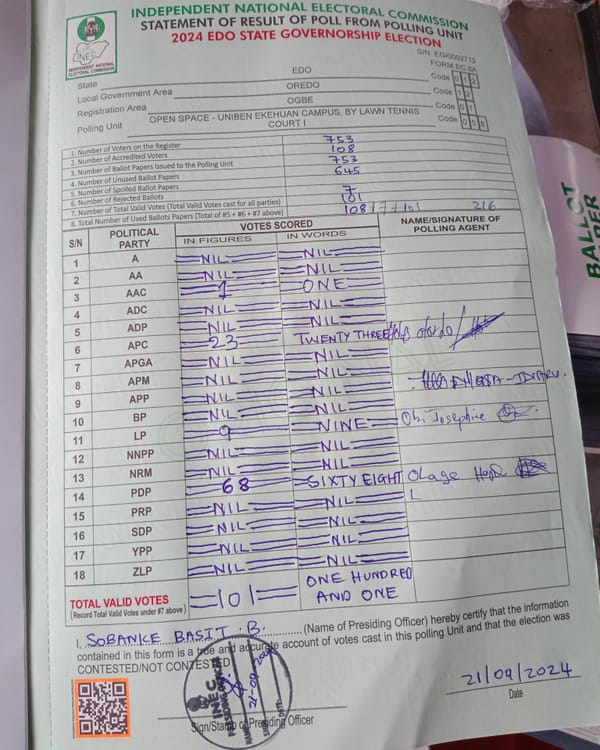 INDEPENDENT NATIONAL ELECTORAL COMMISSION
STATEMENT OF RESULT OF POLL FROM POLLING UNIT
2024 EDO STATE GOVERNORSHIP ELECTION
INEC
INDEPENDENT NATIONAL ELECTORAL COMMISSION
S/N. EG/0002712
FORM EC 8A
State EDO Code 012
Local Government Area OREDO Code 12
Registration Area OGBE Code 01
Polling Unit OPEN SPACE - UNIBEN EKEHUAN CAMPUS, BY LAWN TENNIS COURT I Code
1. Number of Voters on the Register 753
2. Number of Accredited Voters 108
3. Number of Ballot Papers Issued to the Polling Unit 753
4. Number of Unused Ballot Papers 645
5. Number of Spoiled Ballot Papers
6. Number of Rejected Ballots 7
7. Number of Total Valid Votes (Total Valid Votes cast for all parties) 101
8. Total Number of Used Ballots Papers (Total of #5 + #6 + #7 above) 108
S/N POLITICAL PARTY VOTES SCORED NAME/SIGNATURE OF POLLING AGENT
IN FIGURES IN WORDS
1 A NIL NIL
2 AA NIL NIL
3 AAC 1 ONE
4 ADC NIL NIL
5 ADP NIL NIL
6 APC 23 TWENTY THREE
7 APGA NIL NIL
8 APM NIL NIL
9 APP NIL NIL
10 BP NIL NIL
11 LP 9 NINE Obi Josephine
12 NNPP NIL NIL
13 NRM NIL NIL
14 PDP 68 SIXTY EIGHT
15 PRP NIL NIL
16 SDP NIL NIL
17 YPP NIL NIL
18 ZLP NIL NIL
TOTAL VALID VOTES 101 ONE HUNDRED AND ONE
(Record Total Valid Votes under #7 above)
I, SOBANKE BASIT .B. (Name of Presiding Officer) hereby certify that the information
contained in this form is a true and accurate account of votes cast in this polling Unit and that the election was
CONTESTED/NOT CONTESTED
INEC
PRESIDING OFFICER
21/09/2024
Sign/Stamp of Presiding Officer
Date
BALLOT
PAPER